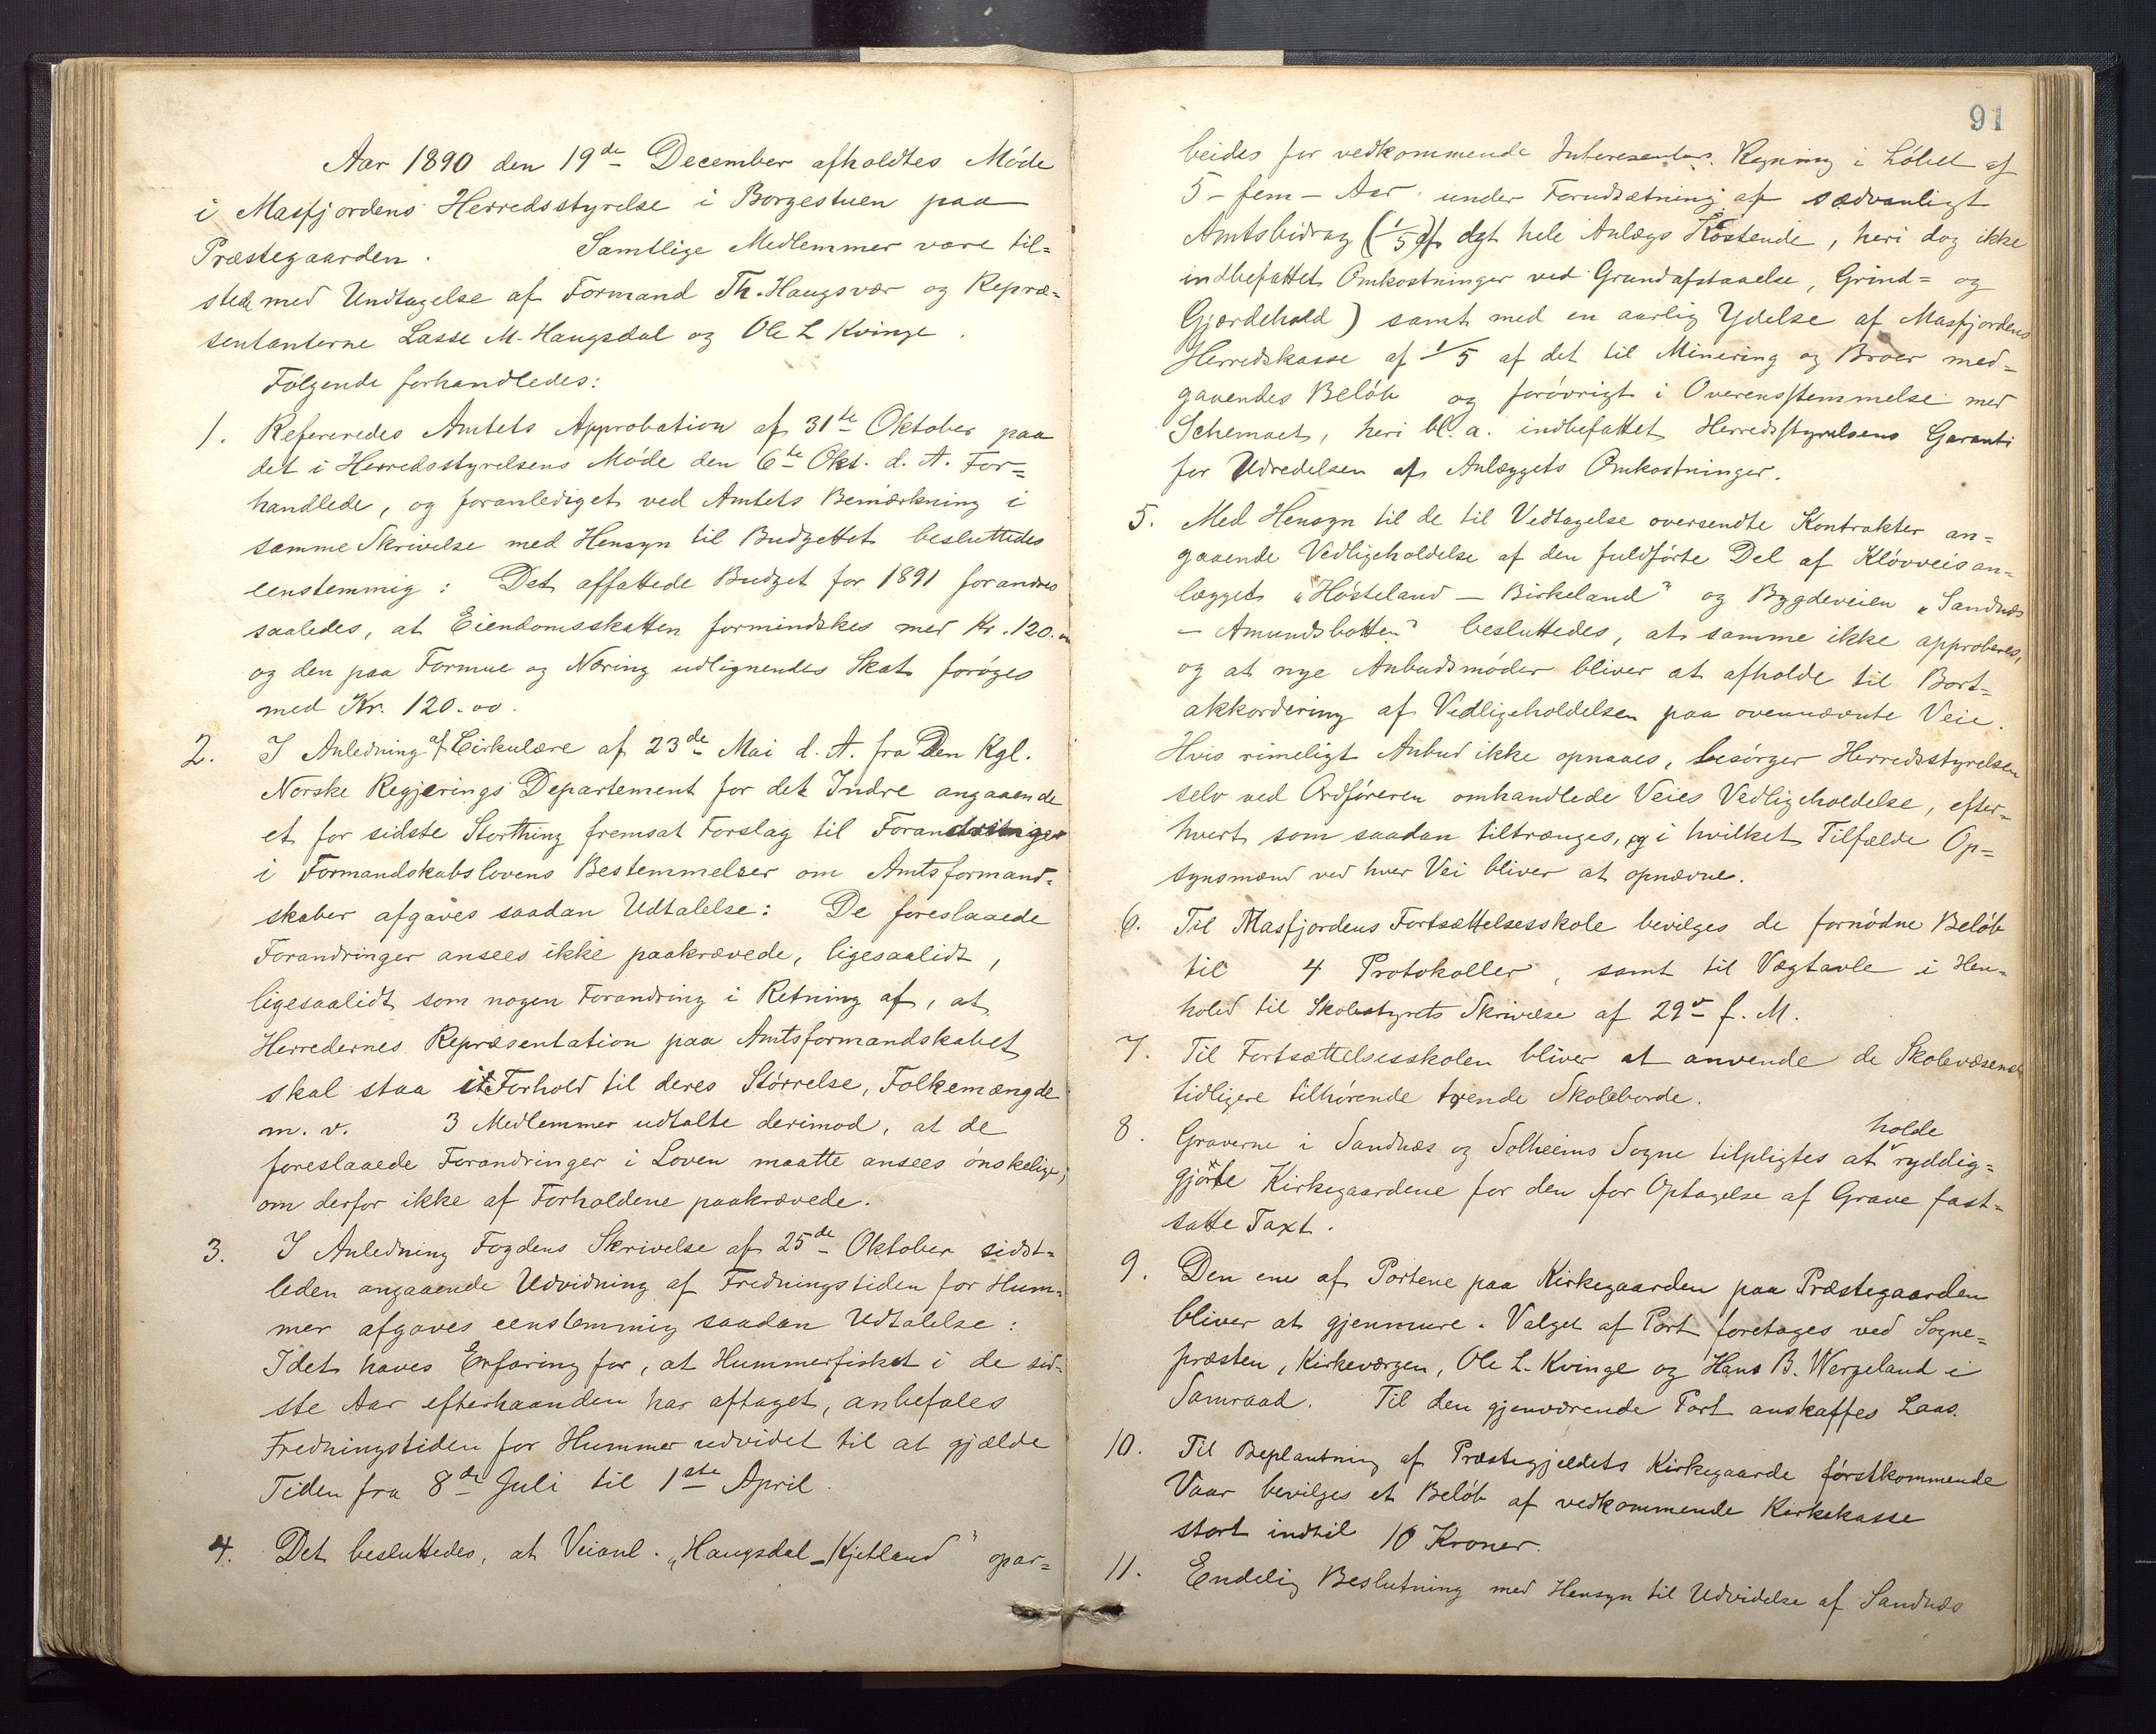 Aar 1890 den 19de December afholdtes Møde
i Masfjordens Herredsstyrelse i Borgestuen paa
Præstegaarden. Samtlige Medlemmer vare til=
stede med Undtagelse af Formand Th. Haugsvær og Repræ=
sentanterne Lasse M. Haugsdal og Ole L Kvinge.
Følgende forhandledes:
1. Refereredes Amtets Approbation af 31te Oktober paa
det i Herredsstyrelsens Møde den 6te Okt. d. A. For=
handlede, og foranlediget ved Amtets Bemærkning i
samme Skrivelse med Hensyn til Budgettet besluttedes
eenstemmig: Det affattede Budget for 1891 forandres
saaledes, at Eiendomsskatten formindskes med Kr. 120.00
og den paa Formue og Næring udlignendes Skat forøges
med Kr. 120.00.
2. I Anledning af Cirkulære af 23de Mai d. A. fra Den Kgl.
Norske Regjerings Departement for det Indre angaaende
et for sidste Storthing fremsat Forslag til Forandringer
i Formandskabslovens Bestemmelser om Amtsformand=
skaber afgaves saadan Udtalelse: De foreslaaede
Forandringer ansees ikke paakrævede, ligesaalidt,
ligesaalidt som nogen Forandring i Retning af, at
Herredernes Repræsentation paa Amtsformandskabet
skal staa i Forhold til deres Størrelse, Folkemængde
m. v. 3 Medlemmer udtalte derimod, at de
foreslaaede Forandringer i Loven maatte ansees ønskelige,
om derfor ikke af Forholdene paakrævede.
3. I Anledning Fogdens Skrivelse af 25de Oktober sidst=
leden angaaende Udvidning af Fredningstiden for Hum=
mer afgaves eenstemmig saadan Udtalelse:
Idet haves Erfaring for, at Hummerfisket i de sid=
ste Aar efterhaanden har aftaget, anbefales
Fredningstiden for Hummer udvidet til at gjælde
Tiden fra 8de Juli til 1ste April.
4. Det besluttedes, at Veianl. "Haugsdal - Kjetland" opar=
91
beides for vedkommende Interesenters Regning i Løbet af
5 - fem - Aar under Forudsætning af sædvanligt
Amtsbidrag (1/5 af det hele Anlægs Kostende, heri dog ikke
indbefattet Omkostninger ved Grundafstaaelse, Grind= og
Gjærdehold) samt med en aarlig Ydelse af Masfjordens
Herredskasse af 1/5 af det til Minering og Broer med=
gaaendes Beløb og forøvrigt i Overensstemmelse med
Schemaet, heri bl. a. indbefattet Herredsstyrelsens Garanti
for Udredelsen af Anlæggets Omkostninger.
5. Med Hensyn til de til Vedtagelse oversendte Kontrakter an=
gaaende Vedligeholdelse af den fuldførte Del af Kløvveisan=
lægget "Høsteland - Birkeland" og Bygdeveien "Sandnæs
- Amundsbotten" besluttedes, at samme ikke approberes,
og at nye Anbudsmøder bliver at afholde til Bort=
akkordering af Vedligeholdelsen paa ovennævnte Veie.
Hvis rimeligt Anbud ikke opnaaes, besørger Herredsstyrelsen
selv ved Ordføreren omhandlede Veies Vedligeholdelse, efter=
hvert som saadan tiltrænges, og i hvilket Tilfælde Op=
synsmænd ved hver Vei bliver at opnævne.
6. Til Masfjordens Fortsættelsesskole bevilges de fornødne Beløb
til 4 Protokoller, samt til Vægtavle i Hen=
hold til Skolestyrets Skrivelse af 29de f. M.
7. Til Fortsættelsesskolen bliver at anvende de Skolevæsenet
tidligere tilhørende tvende Skoleborde.
8. Graverne i Sandnæs og Solheims Sogne tilpligtes at holde ryddig=
gjørte Kirkegaardene for den for Optagelse af Grave fast=
satte Taxt.
9. Den ene af Portene paa Kirkegaarden paa Præstegaarden
bliver at gjenmure. Valget af Port foretages ved Sogne=
præsten, Kirkeværgen, Ole L. Kvinge og Hans B. Wergeland i
Samraad. Til den gjenværende Port anskaffes Laas.
10. Til Beplantning af Præstegjeldets Kirkegaarde førstkommende
Vaar bevilges et Beløb af vedkommende Kirkekasse
stort indtil 10 Kroner.
11. Endelig Beslutning med Hensyn til Udvidelse af Sandnæs